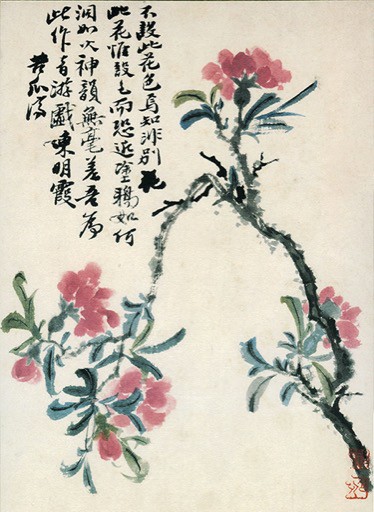 不設此花色焉知非別花
此花設色而恐近塗鴉如何
如火神韻無毫差吾為
此作游戲東明霞
苦瓜濟